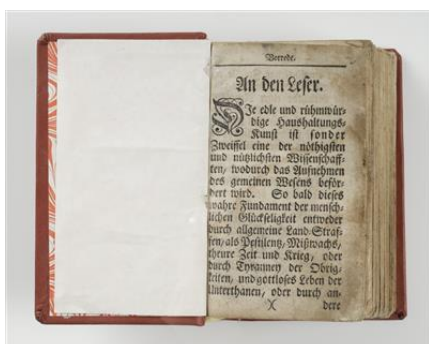 Vorrede.
An den Leſer.
DJe edle und rühmwür-
dige Haushaltungs-
Kunſt iſt ſonder
Zweiffel eine der nöthigſten
und nützlichſten Wiſſenſchaff-
ten, wodurch das Aufnehmen
des gemeinen Weſens beför-
dert wird. So bald dieſes
wahre Fundament der menſch-
lichen Glückſeligkeit entweder
durch allgemeine Land-Straf-
fen, als Peſtilentz, Mißwachs,
theure Zeit und Krieg, oder
durch Tyranney der Obrig-
keiten, und gottloſes Leben der
Unterthanen, oder durch an-
X dere